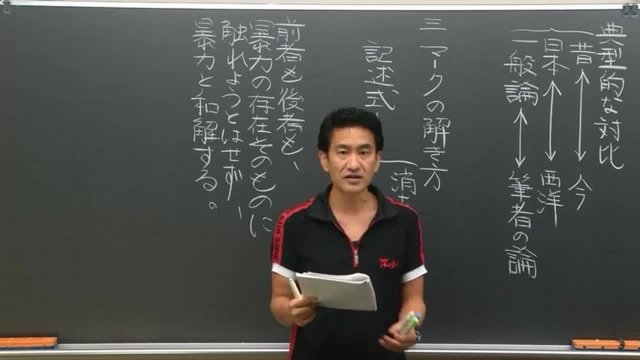 典型的な対比
昔 ↔ 今
日本 ↔ 西洋
一般論 ↔ 筆者の論
三 マークの解き方
記述式
消
前者も後者も、
暴力の存在そのものに
触れようとはせず、
暴力と和解する。